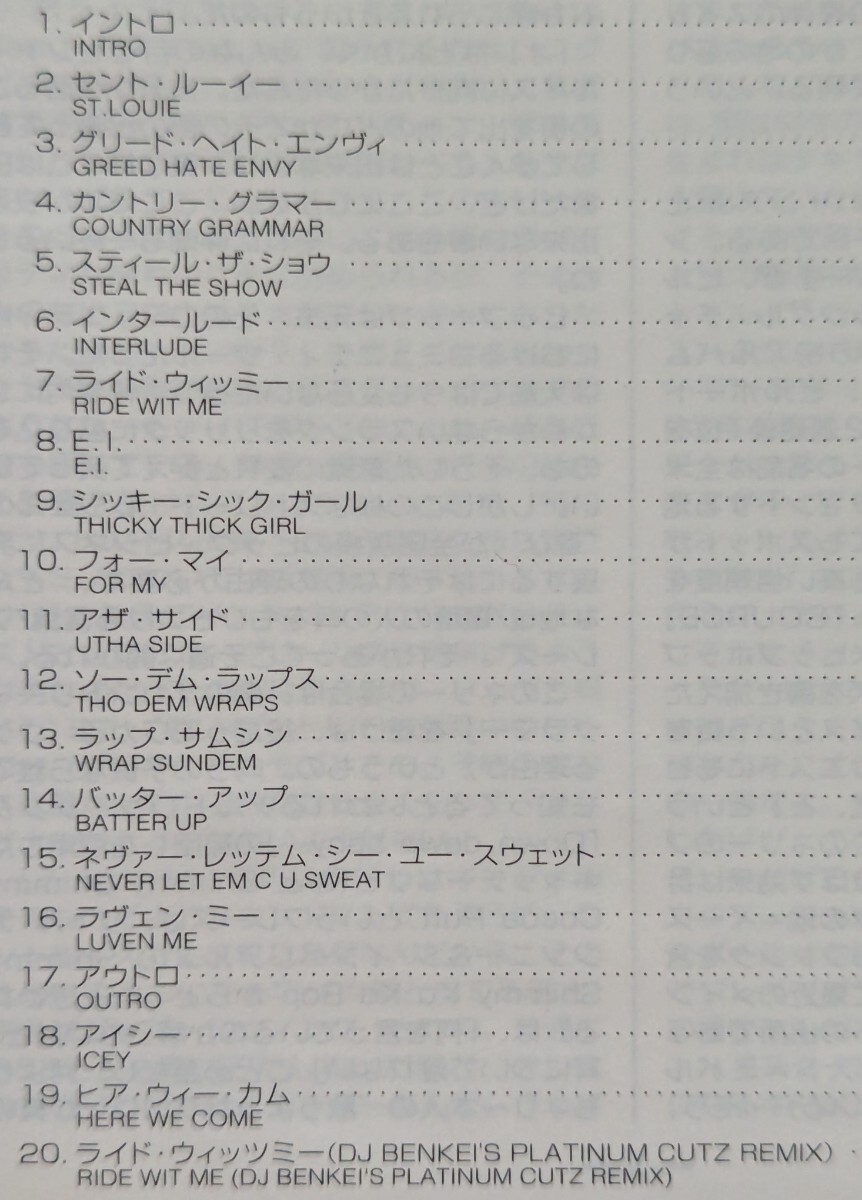 1. イントロ
INTRO
2. セント・ルーイー
ST.LOUIE
3. グリード・ヘイト・エンヴィ
GREED HATE ENVY
4. カントリー・グラマー
COUNTRY GRAMMAR
5. スティール・ザ・ショウ
STEAL THE SHOW
6. インタールード
INTERLUDE
7. ライド・ウィッミー
RIDE WIT ME
8. E.I.
E.I.
9. シッキー・シック・ガール
THICKY THICK GIRL
10. フォー・マイ
FOR MY
11. アザ・サイド
UTHA SIDE
12. ソー・デム・ラップス
THO DEM WRAPS
13. ラップ・サムシン
WRAP SUNDEM
14. バッター・アップ
BATTER UP
15. ネヴァー・レッテム・シー・ユー・スウェット
NEVER LET EM C U SWEAT
16. ラヴェン・ミー
LUVEN ME
17. アウトロ
OUTRO
18. アイシー
ICEY
19. ヒア・ウィー・カム
HERE WE COME
20. ライド・ウィッツミー(DJ BENKEI'S PLATINUM CUTZ REMIX)
RIDE WIT ME (DJ BENKEI'S PLATINUM CUTZ REMIX)